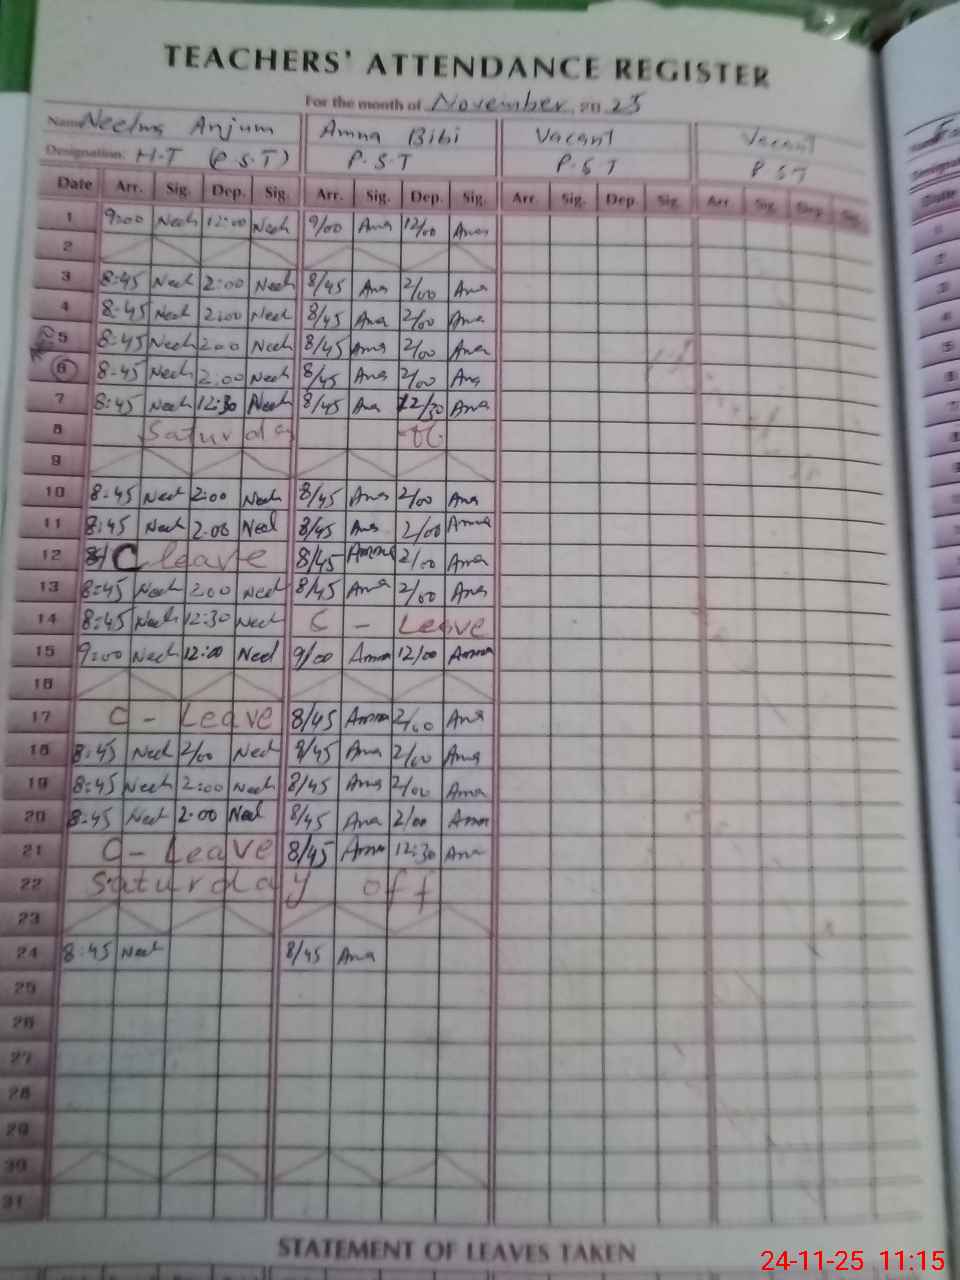 TEACHERS' ATTENDANCE REGISTER
For the month of November 2025
Name Neelma Anjum Amna Bibi Vacant Vacant
Designation. H.T (P.S.T) P.S.T P.S T P ST
Date Arr. Sig. Dep. Sig. Arr. Sig. Dep. Sig. Arr. Sig. Dep. Sig. Arr. Sig. Dep. Sig.
1 9:00 Neel 12:00 Neel 9/00 Ama 12/00 Amna
2
3 8:45 Neel 2:00 Neel 8/45 Ama 2/00 Ama
4 8:45 Neel 2:00 Neel 8/45 Ama 2/00 Ama
5 8:45 Neel 2:00 Neel 8/45 Ama 2/00 Ama
6 8:45 Neel 2:00 Neel 8/45 Ama 2/00 Ama
7 8:45 Neel 12:30 Neel 8/45 Ama 12/30 Ama
8 Saturday off
9
10 8:45 Neel 2:00 Neel 8/45 Ama 2/00 Ama
11 8:45 Neel 2:00 Neel 8/45 Ama 2/00 Amna
12 C leave 8/45 Amna 2/00 Ama
13 8:45 Neel 2:00 Neel 8/45 Ama 2/00 Ama
14 8:45 Neel 12:30 Neel C - Leave
15 9:00 Neel 12:00 Neel 9/00 Amna 12/00 Amna
16
17 C - Leave 8/45 Amna 2/00 Ama
18 8:45 Neel 2/00 Neel 8/45 Ama 2/00 Ama
19 8:45 Neel 2:00 Neel 8/45 Ama 2/00 Ama
20 8:45 Neel 2:00 Neel 8/45 Ama 2/00 Amna
21 C - Leave 8/45 Amna 12:30 Ama
22 Saturday off
23
24 8:45 Neel 8/45 Ama
25
26
27
28
29
30
31
STATEMENT OF LEAVES TAKEN
24-11-25 11:15